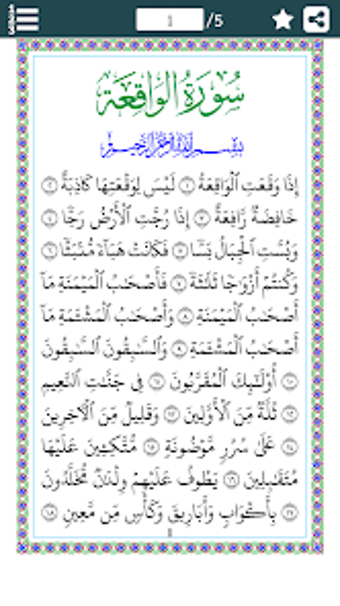 1 /5
سُورَةُ الوَاقِعَة
بِسْمِ اللَّهِ الرَّحْمَٰنِ الرَّحِيمِ
إِذَا وَقَعَتِ ٱلْوَاقِعَةُ ١ لَيْسَ لِوَقْعَتِهَا كَاذِبَةٌ ٢
خَافِضَةٌ رَّافِعَةٌ ٣ إِذَا رُجَّتِ ٱلْأَرْضُ رَجًّا ٤
وَبُسَّتِ ٱلْجِبَالُ بَسًّا ٥ فَكَانَتْ هَبَآءً مُّنۢبَثًّا ٦
وَكُنتُمْ أَزْوَٰجًا ثَلَٰثَةً ٧ فَأَصْحَٰبُ ٱلْمَيْمَنَةِ مَآ
أَصْحَٰبُ ٱلْمَيْمَنَةِ ٨ وَأَصْحَٰبُ ٱلْمَشْـَٔمَةِ مَآ
أَصْحَٰبُ ٱلْمَشْـَٔمَةِ ٩ وَٱلسَّٰبِقُونَ ٱلسَّٰبِقُونَ
١٠ أُو۟لَٰٓئِكَ ٱلْمُقَرَّبُونَ ١١ فِى جَنَّٰتِ ٱلنَّعِيمِ
١٢ ثُلَّةٌ مِّنَ ٱلْأَوَّلِينَ ١٣ وَقَلِيلٌ مِّنَ ٱلْءَاخِرِينَ
١٤ عَلَىٰ سُرُرٍ مَّوْضُونَةٍ ١٥ مُّتَّكِـِٔينَ عَلَيْهَا
مُتَقَٰبِلِينَ ١٦ يَطُوفُ عَلَيْهِمْ وِلْدَٰنٌ مُّخَلَّدُونَ
١٧ بِأَكْوَابٍ وَأَبَارِيقَ وَكَأْسٍ مِّن مَّعِينٍ ١٨